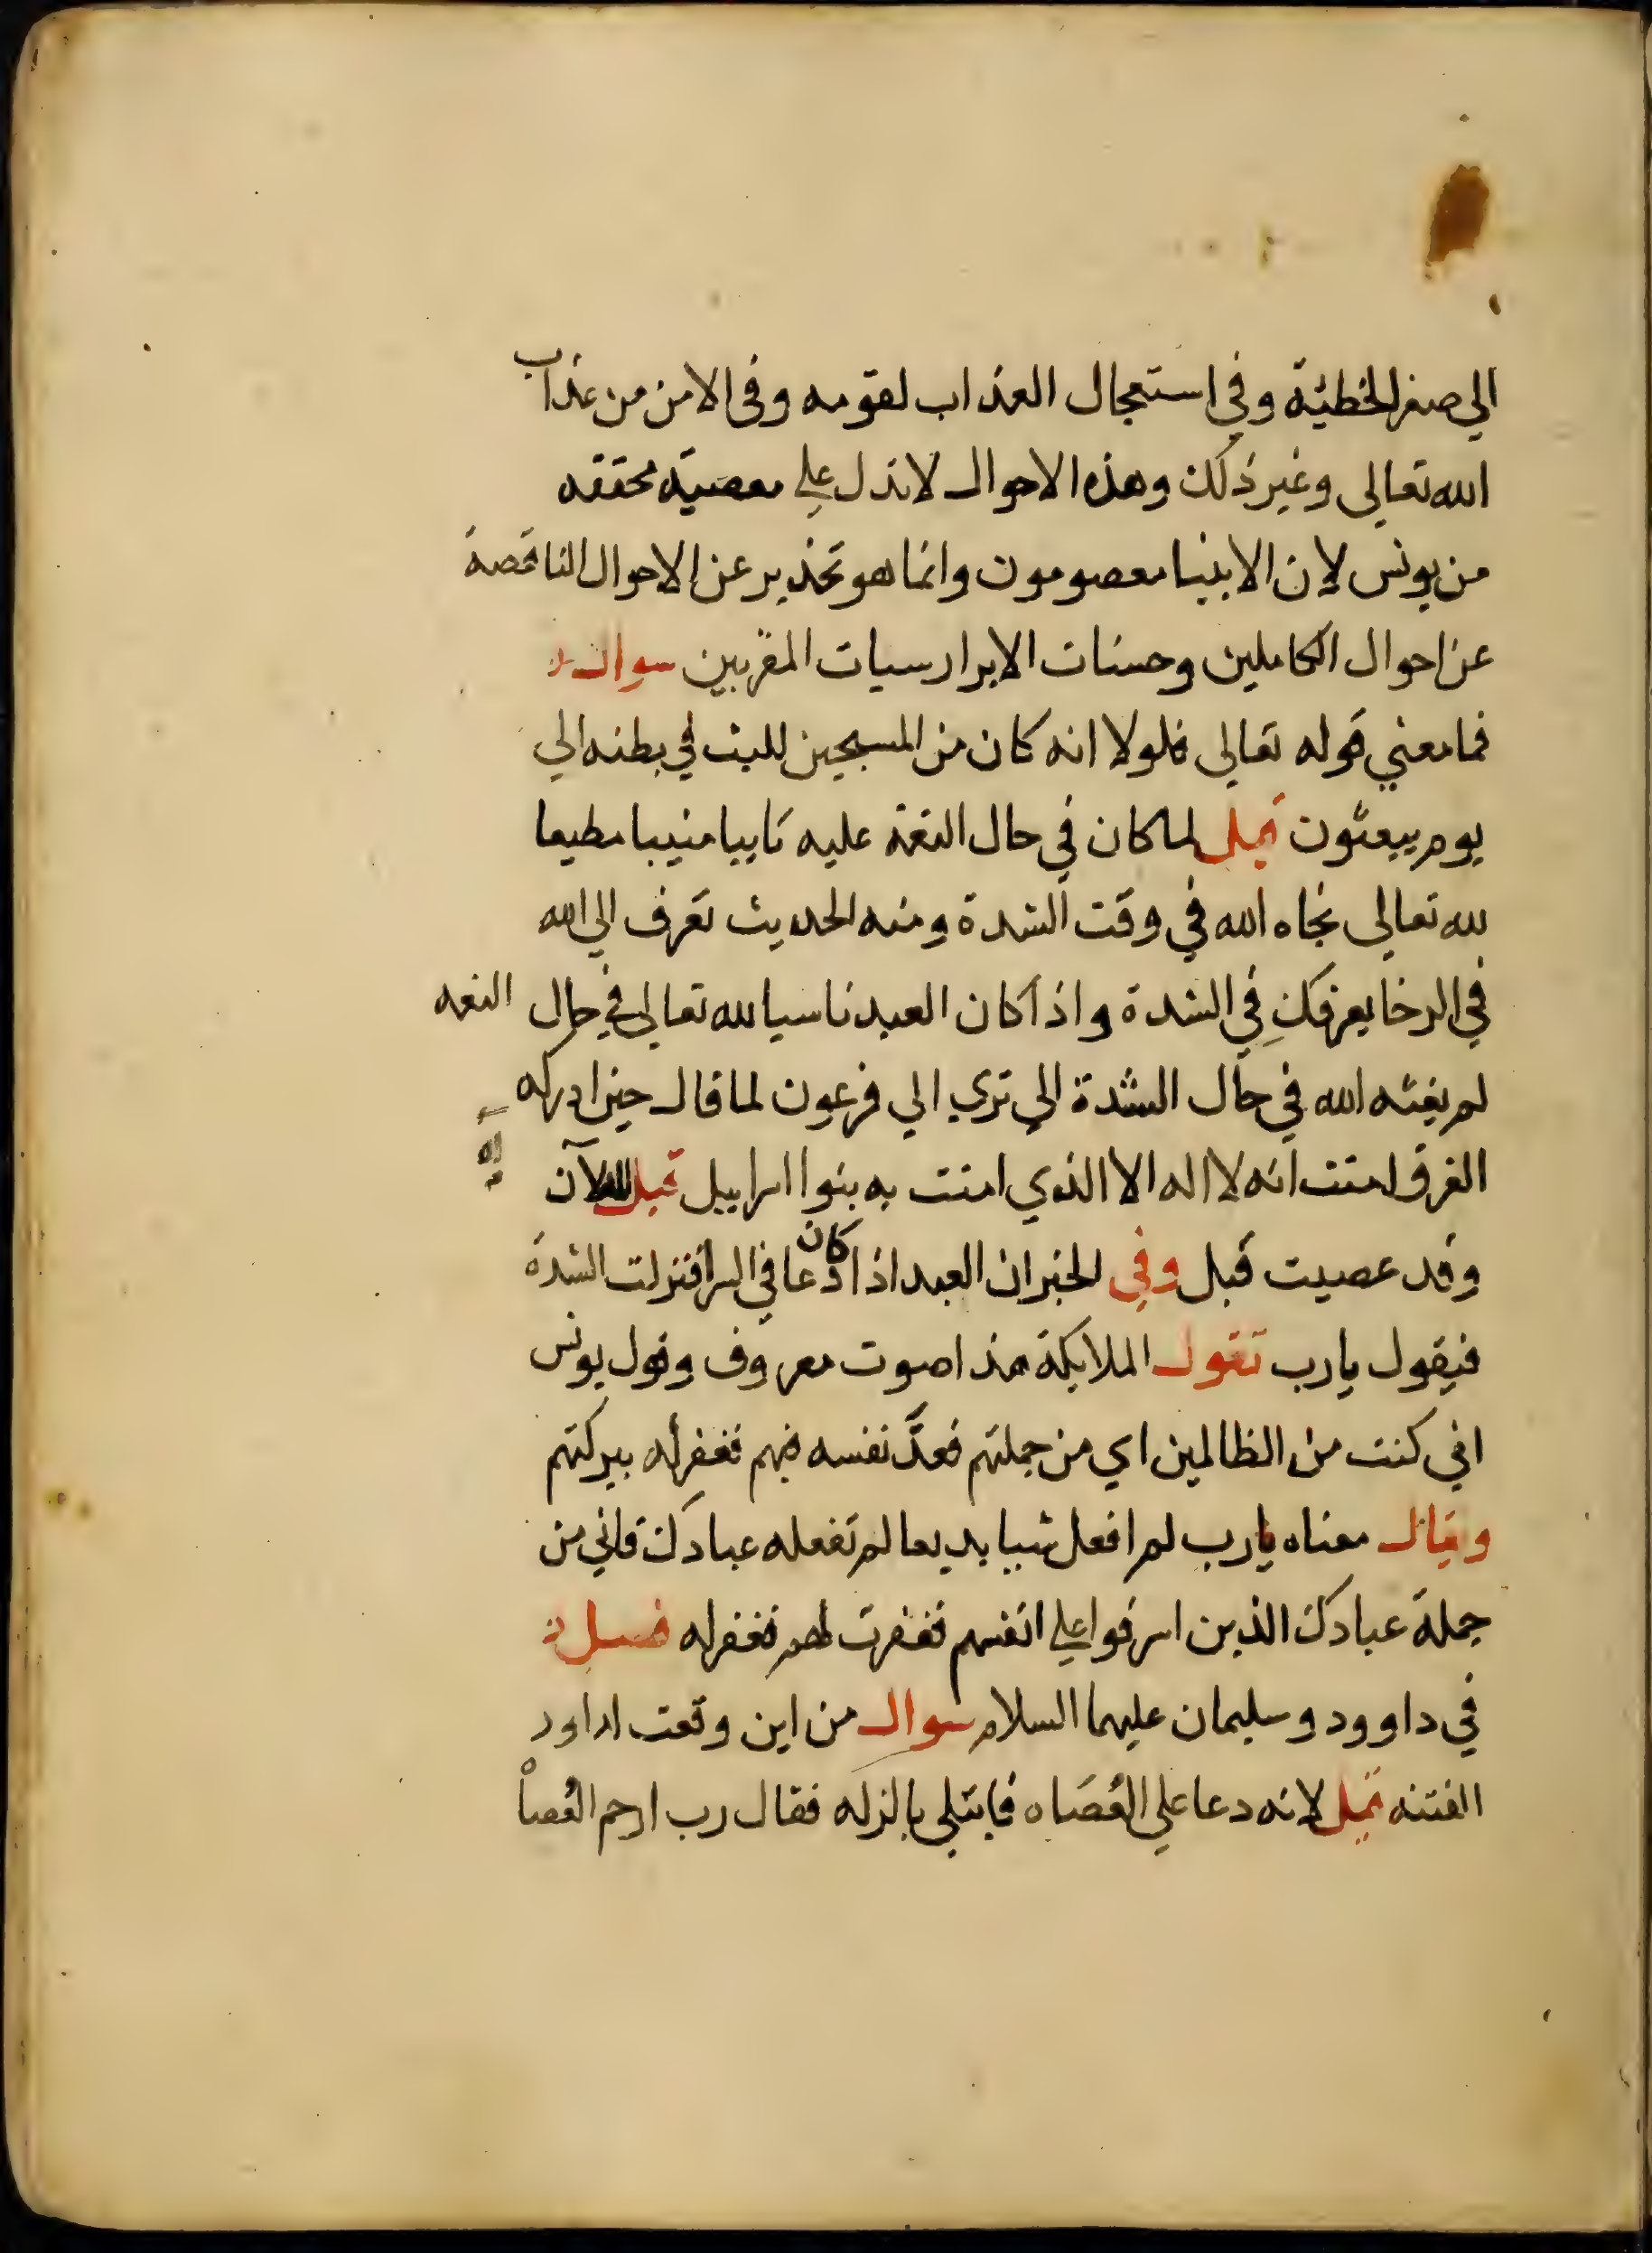 الي صغر الخطيئة وفي استعجال العذاب لقومه وفى الامن من عذاب
الله تعالى وغير ذلك وهذه الاحوال لا تدل علي معصية محققه
من يونس لان الانبيا معصومون وانما هو تحذير عن الاحوال الناقصة
عن احوال الكاملين وحسنات الابرار سيات المقربين سوال
فما معني قوله تعالى فلولا انه كان من المسبحين للبث في بطنه الي
يوم يبعثون قيل لما كان في حال النعمة عليه تايبا منيبا مطيعا
لله تعالى نجاه الله في وقت الشدة ومنه الحديث تعرف الي الله
في الرخا يعرفك في الشدة واذا كان العبد ناسيا لله تعالى في حال النعمه
لم يغثه الله في حال الشدة الي تري الي فرعون لما قال حين ادركه
الغرق امنت انه لا اله الا الذي امنت به بنوا اسراييل قيل له الآن
وقد عصيت قبل وفي الخبر ان العبد اذا كان دعا في السرا فنزلت الشدة
فيقول يا رب تقول الملايكة هذا صوت معروف وقول يونس
اني كنت من الظالمين اي من جملتهم فعدّ نفسه منهم فغفر له ببركتهم
ويقال معناه يا رب لم افعل شييا بديعا لم تفعله عبادك فاني من
جملة عبادك الذين اسرفوا علي انفسهم فغفرت لهم فغفر له فصل
في داوود وسليمان عليهما السلام سوال من اين وقعت لداود
الفتنه قيل لانه دعا علي العُصَاه فابتلى بالزله فقال رب ارحم العُصاْ